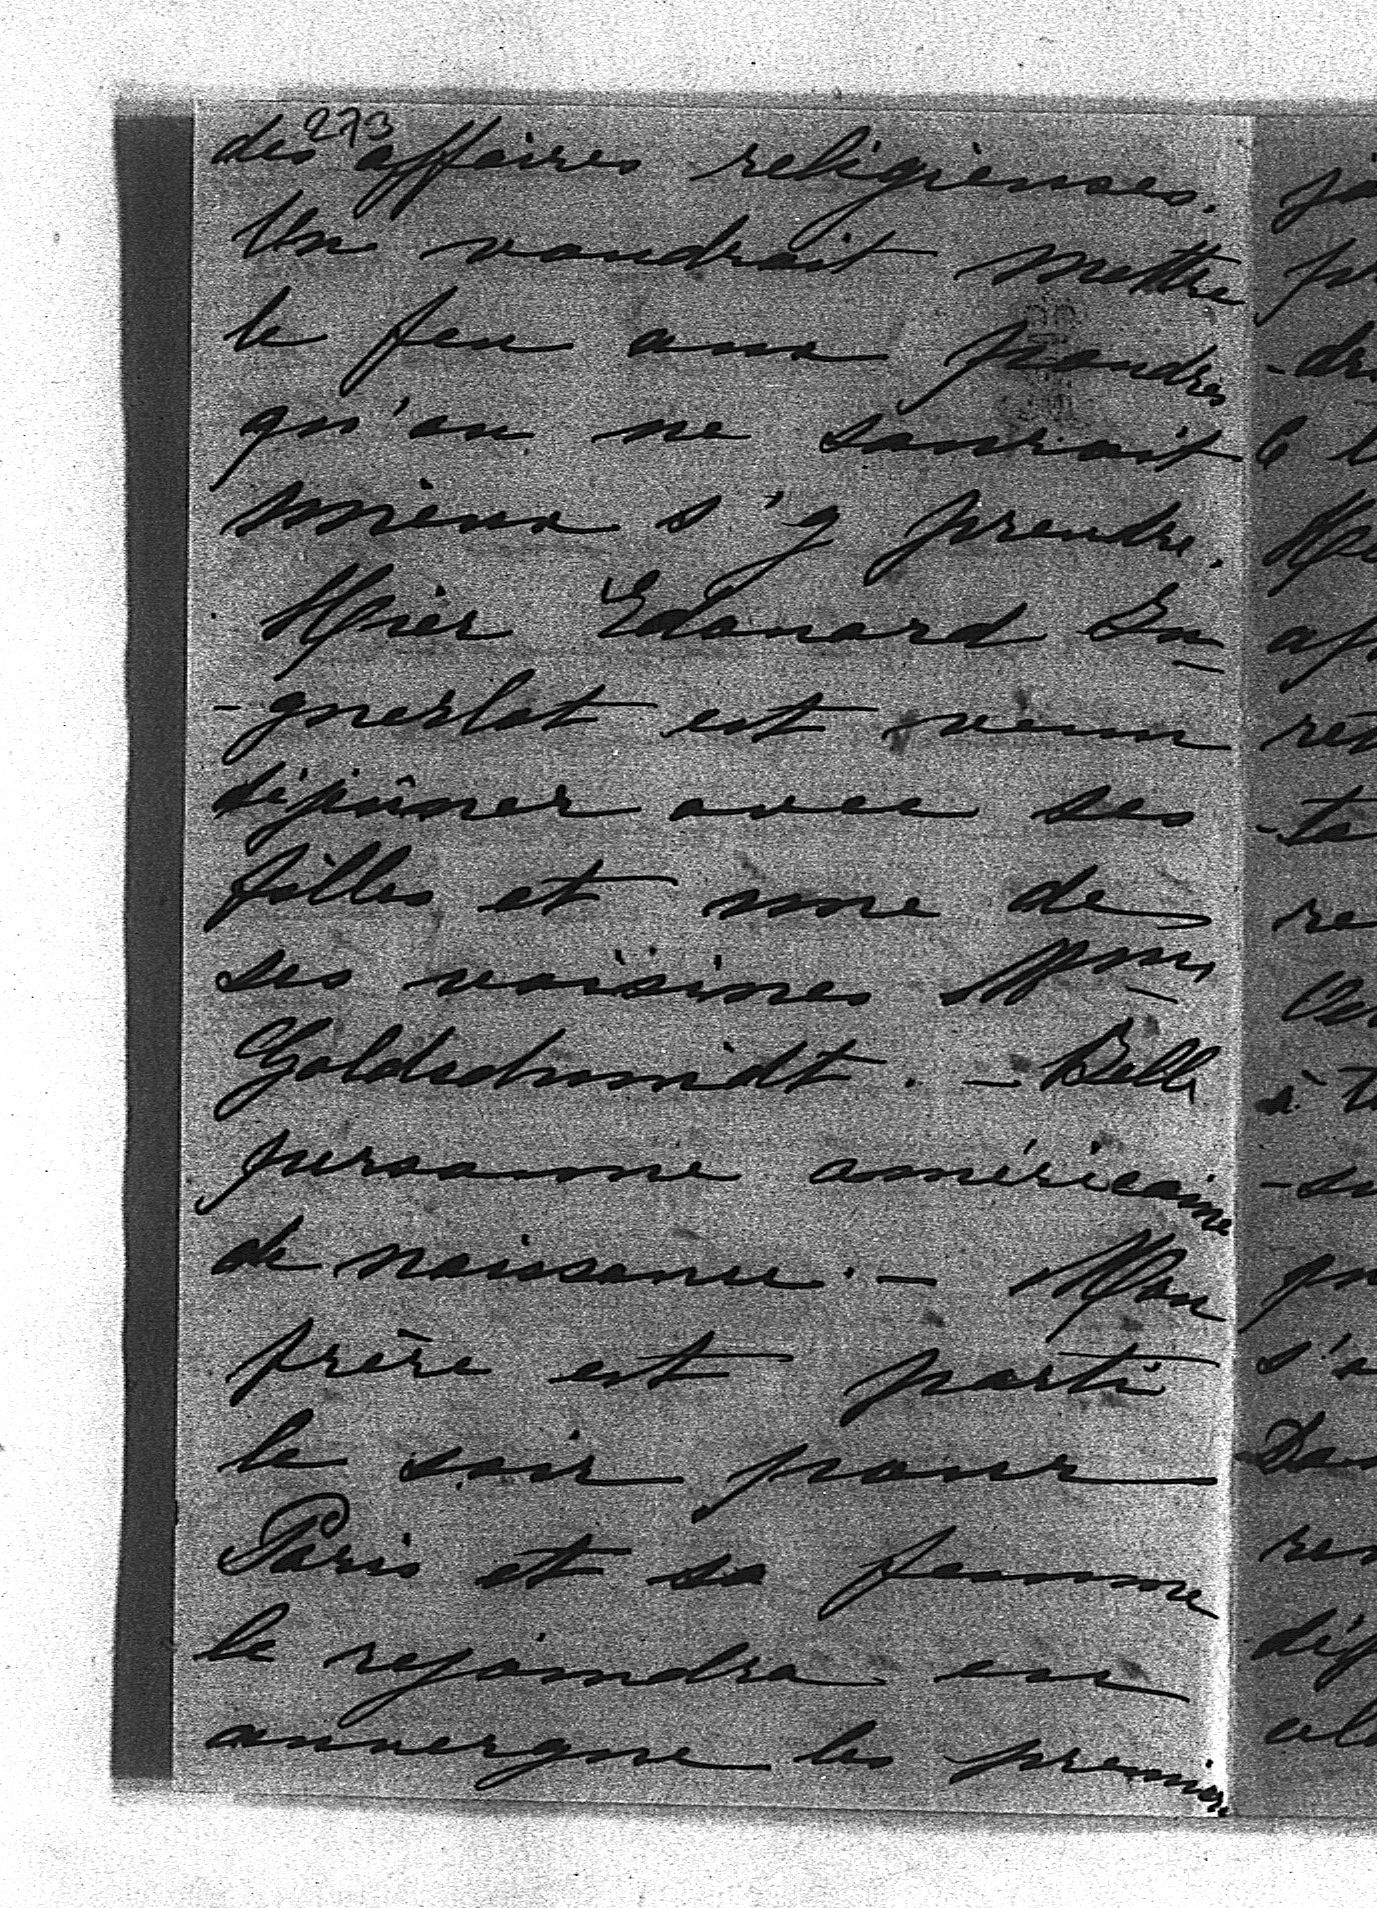 273
des affaires religieuses.
On voudrait mettre
le feu aux poudres
qu'on ne saurait
mieux s'y prendre.
Hier Edouard En-
-gnerlot est venu
déjeûner avec ses
filles et une de
ses voisines Mme
Goldschmidt. - Belle
personne américaine
de naissance. - Mon
frère est parti
le soir pour
Paris et sa femme
le rejoindra en
auvergne les premiers